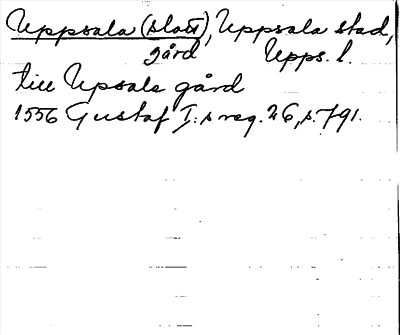 Uppsala (slott), Uppsala stad,
gård Upps. l.
till Upsala gård
1556 Gustaf I:s reg. 26, s. 791.